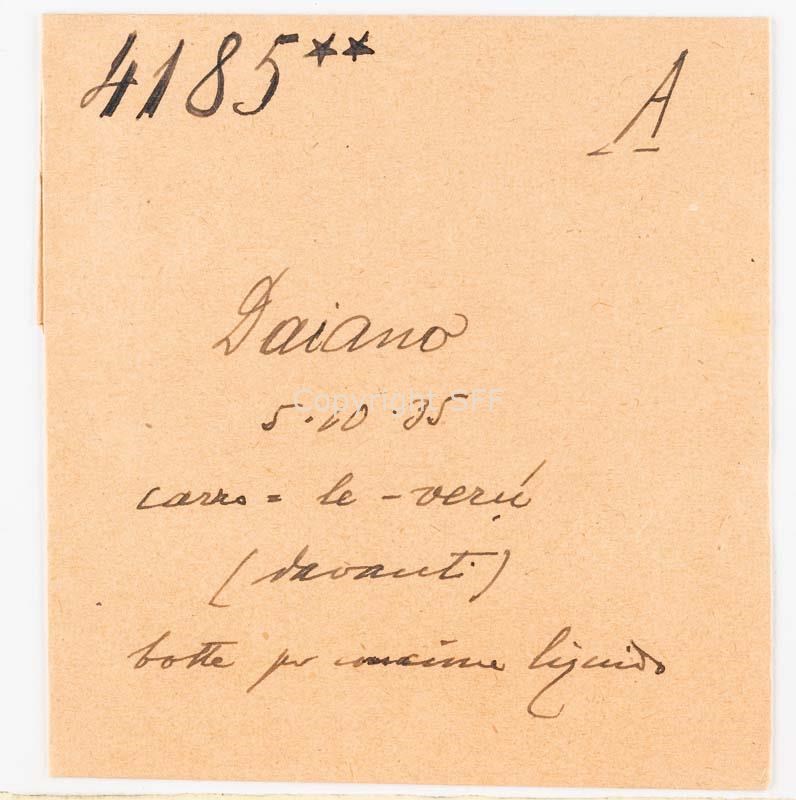 4185** A
Daiano
Copyright SFF
5.10.35
carro = le - verú
(davanti)
botte per concime liquido